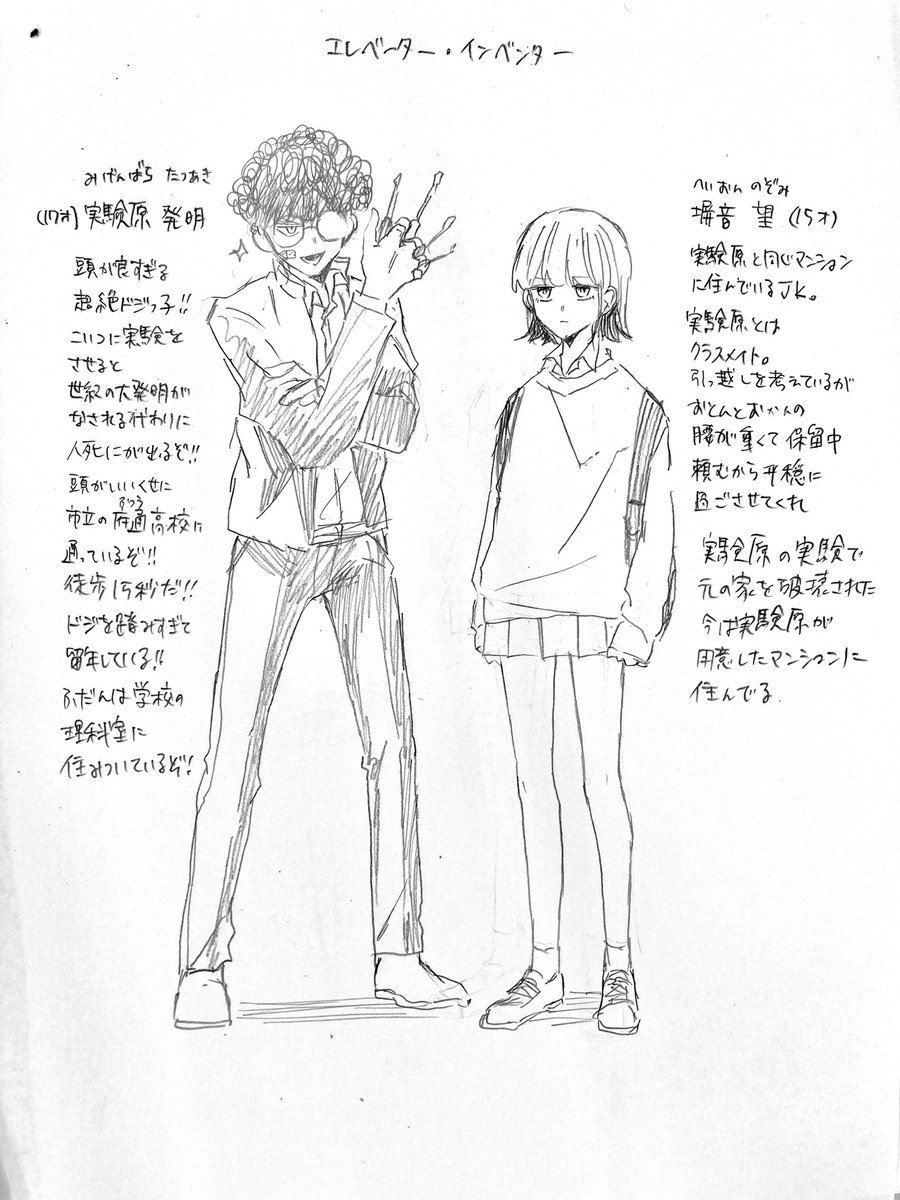 エレベーター・インベンター
みげんばら たつあき
(17才) 実験原 発明
頭が良すぎる
超絶ドジっ子!!
こいつに実験を
させると
世紀の大発明が
なされる代わりに
人死にが出るぞ!!
頭がいいくせに
ふつう
市立の府通高校に
通っているぞ!!
徒歩15秒だ!!
ドジを踏みすぎて
留年している!!
ふだんは学校の
理科室に
住みついているぞ!
へいおん のぞみ
塀音 望 (15才)
実験原と同じマンション
に住んでいるJK。
実験原とは
クラスメイト。
引っ越しを考えているが
おとんとおかんの
腰が重くて保留中
頼むから平穏に
過ごさせてくれ
実験原の実験で
元の家を破壊された
今は実験原が
用意したマンションに
住んでる.